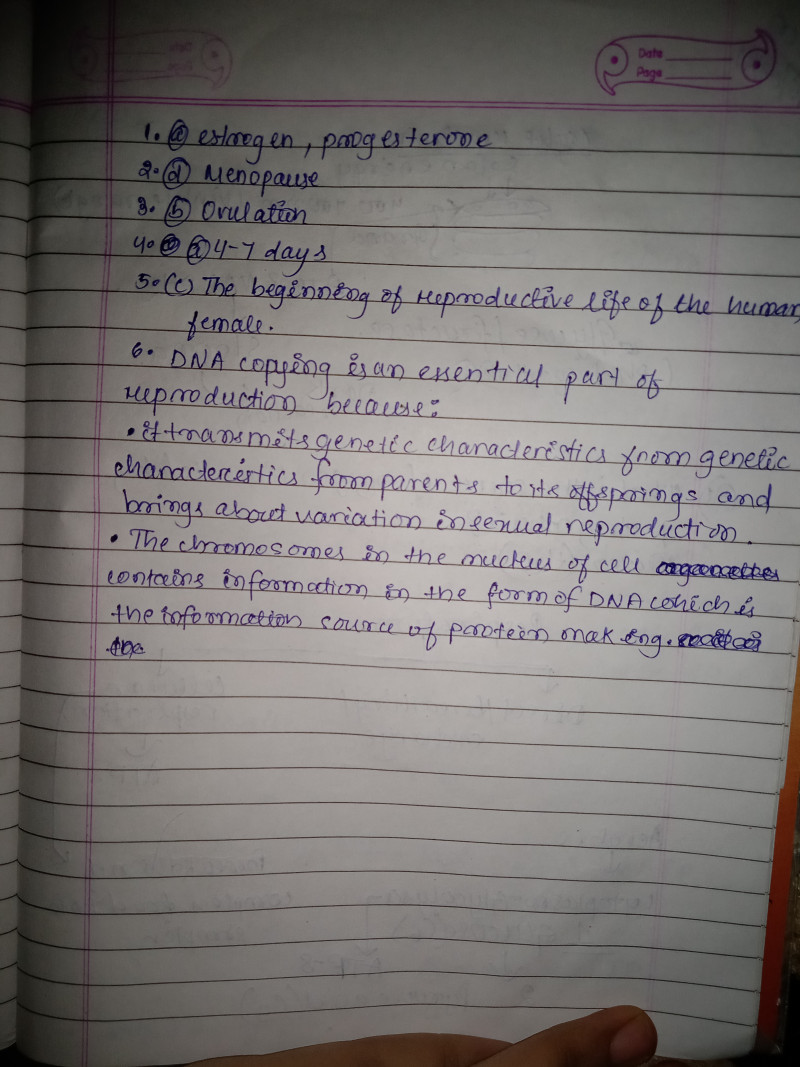 Date
Page
1. ⓐ estrogen, progesterone
2. ⓓ Menopause
3. ⓑ Ovulation
4. 4-7 days
5. (c) The beginning of reproductive life of the human
female.
6. DNA copying is an essential part of
reproduction because:
• it transmits genetic characteristics from genetic
characteristics from parents to its offsprings and
brings about variation in sexual reproduction.
• The chromosomes in the nucleus of cell
contains information in the form of DNA which is
the information source of protein making.